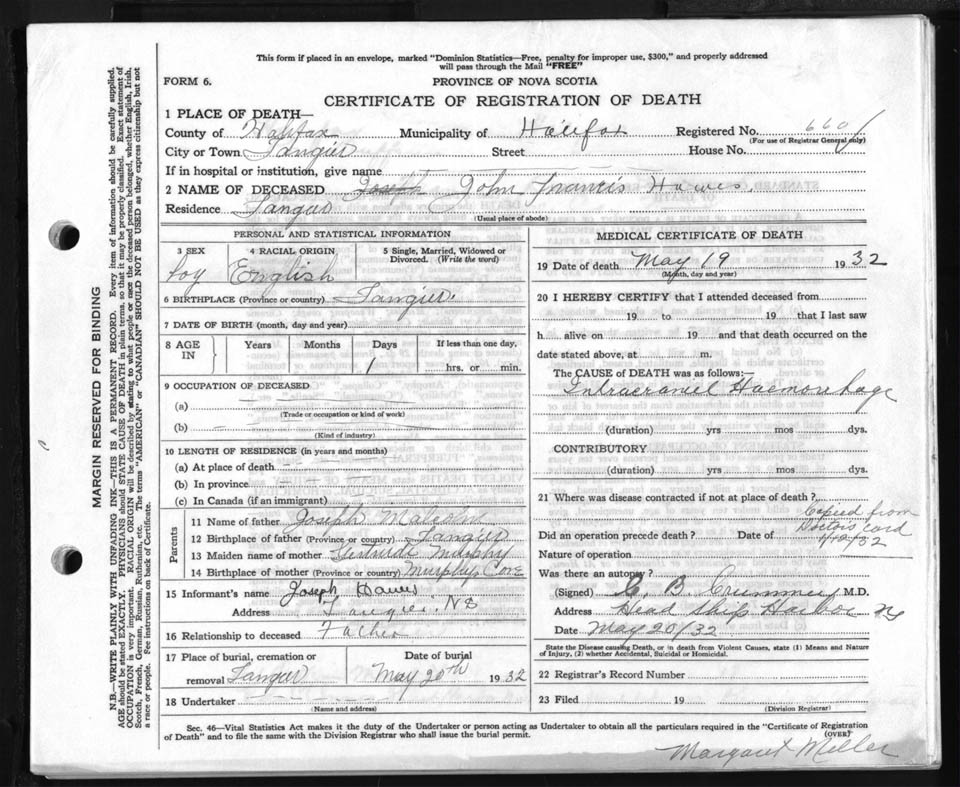 This form if placed in an envelope, marked "Dominion Statistics—Free, penalty for improper use, $300," and properly addressed
will pass through the Mail "FREE"
FORM 6.
PROVINCE OF NOVA SCOTIA
CERTIFICATE OF REGISTRATION OF DEATH
1 PLACE OF DEATH—
County of Halifax Municipality of Halifax Registered No. 660
(For use of Registrar General only)
City or Town Tangier Street House No.
If in hospital or institution, give name
2 NAME OF DECEASED Joseph John Francis Hawes.
Residence Tangier
(Usual place of abode)
PERSONAL AND STATISTICAL INFORMATION
3 SEX 4 RACIAL ORIGIN 5 Single, Married, Widowed or Divorced. (Write the word)
boy English
6 BIRTHPLACE (Province or country) Tangier.
7 DATE OF BIRTH (month, day and year)
8 AGE IN Years Months Days If less than one day,
1 hrs. or min.
9 OCCUPATION OF DECEASED
(a)
(Trade or occupation or kind of work)
(b)
(Kind of industry)
10 LENGTH OF RESIDENCE (in years and months)
(a) At place of death
(b) In province
(c) In Canada (if an immigrant)
Parents
11 Name of father Joseph Malcolm
12 Birthplace of father (Province or country) Tangier
13 Maiden name of mother Gertrude Murphy
14 Birthplace of mother (Province or country) Murphy Cove
15 Informant's name Joseph Hawes
Address Tangier, NS
16 Relationship to deceased Father
17 Place of burial, cremation or removal Tangier Date of burial May 20th 1932
18 Undertaker
(Name and address)
MEDICAL CERTIFICATE OF DEATH
19 Date of death May 19 1932
(Month, day and year)
20 I HEREBY CERTIFY that I attended deceased from
19 to 19 that I last saw
h alive on 19 and that death occurred on the
date stated above, at m.
The CAUSE of DEATH was as follows:—
Intracraniel Haemorrhage
(duration) yrs mos dys.
CONTRIBUTORY
(duration) yrs mos dys.
21 Where was disease contracted if not at place of death?
Copied from
Doctors Card
Did an operation precede death? Date of
Nature of operation
Was there an autopsy?
(Signed) C. B. Crummey M.D.
Address Head Ship Harbor NS
Date May 20/32
State the Disease causing Death, or in death from Violent Causes, state (1) Means and Nature of Injury, (2) whether Accidental, Suicidal or Homicidal.
22 Registrar's Record Number
23 Filed 19
(Division Registrar)
Sec. 46—Vital Statistics Act makes it the duty of the Undertaker or person acting as Undertaker to obtain all the particulars required in the "Certificate of Registration
of Death" and to file the same with the Division Registrar who shall issue the burial permit.
(OVER)
Margaret Miller
MARGIN RESERVED FOR BINDING
N.B.—WRITE PLAINLY WITH UNFADING INK—THIS IS A PERMANENT RECORD. Every item of information should be carefully supplied.
AGE should be stated EXACTLY. PHYSICIANS should STATE CAUSE OF DEATH in plain terms, so that it may be properly classified. Exact statement of
OCCUPATION is very important. RACIAL ORIGIN will be described by stating to what people or race the deceased person belonged, whether English, Irish,
Scotch, French, German, Russian, Ruthenian, etc. The terms "AMERICAN" or "CANADIAN" SHOULD NOT BE USED as they express citizenship but not
a race or people. See instructions on back of Certificate.